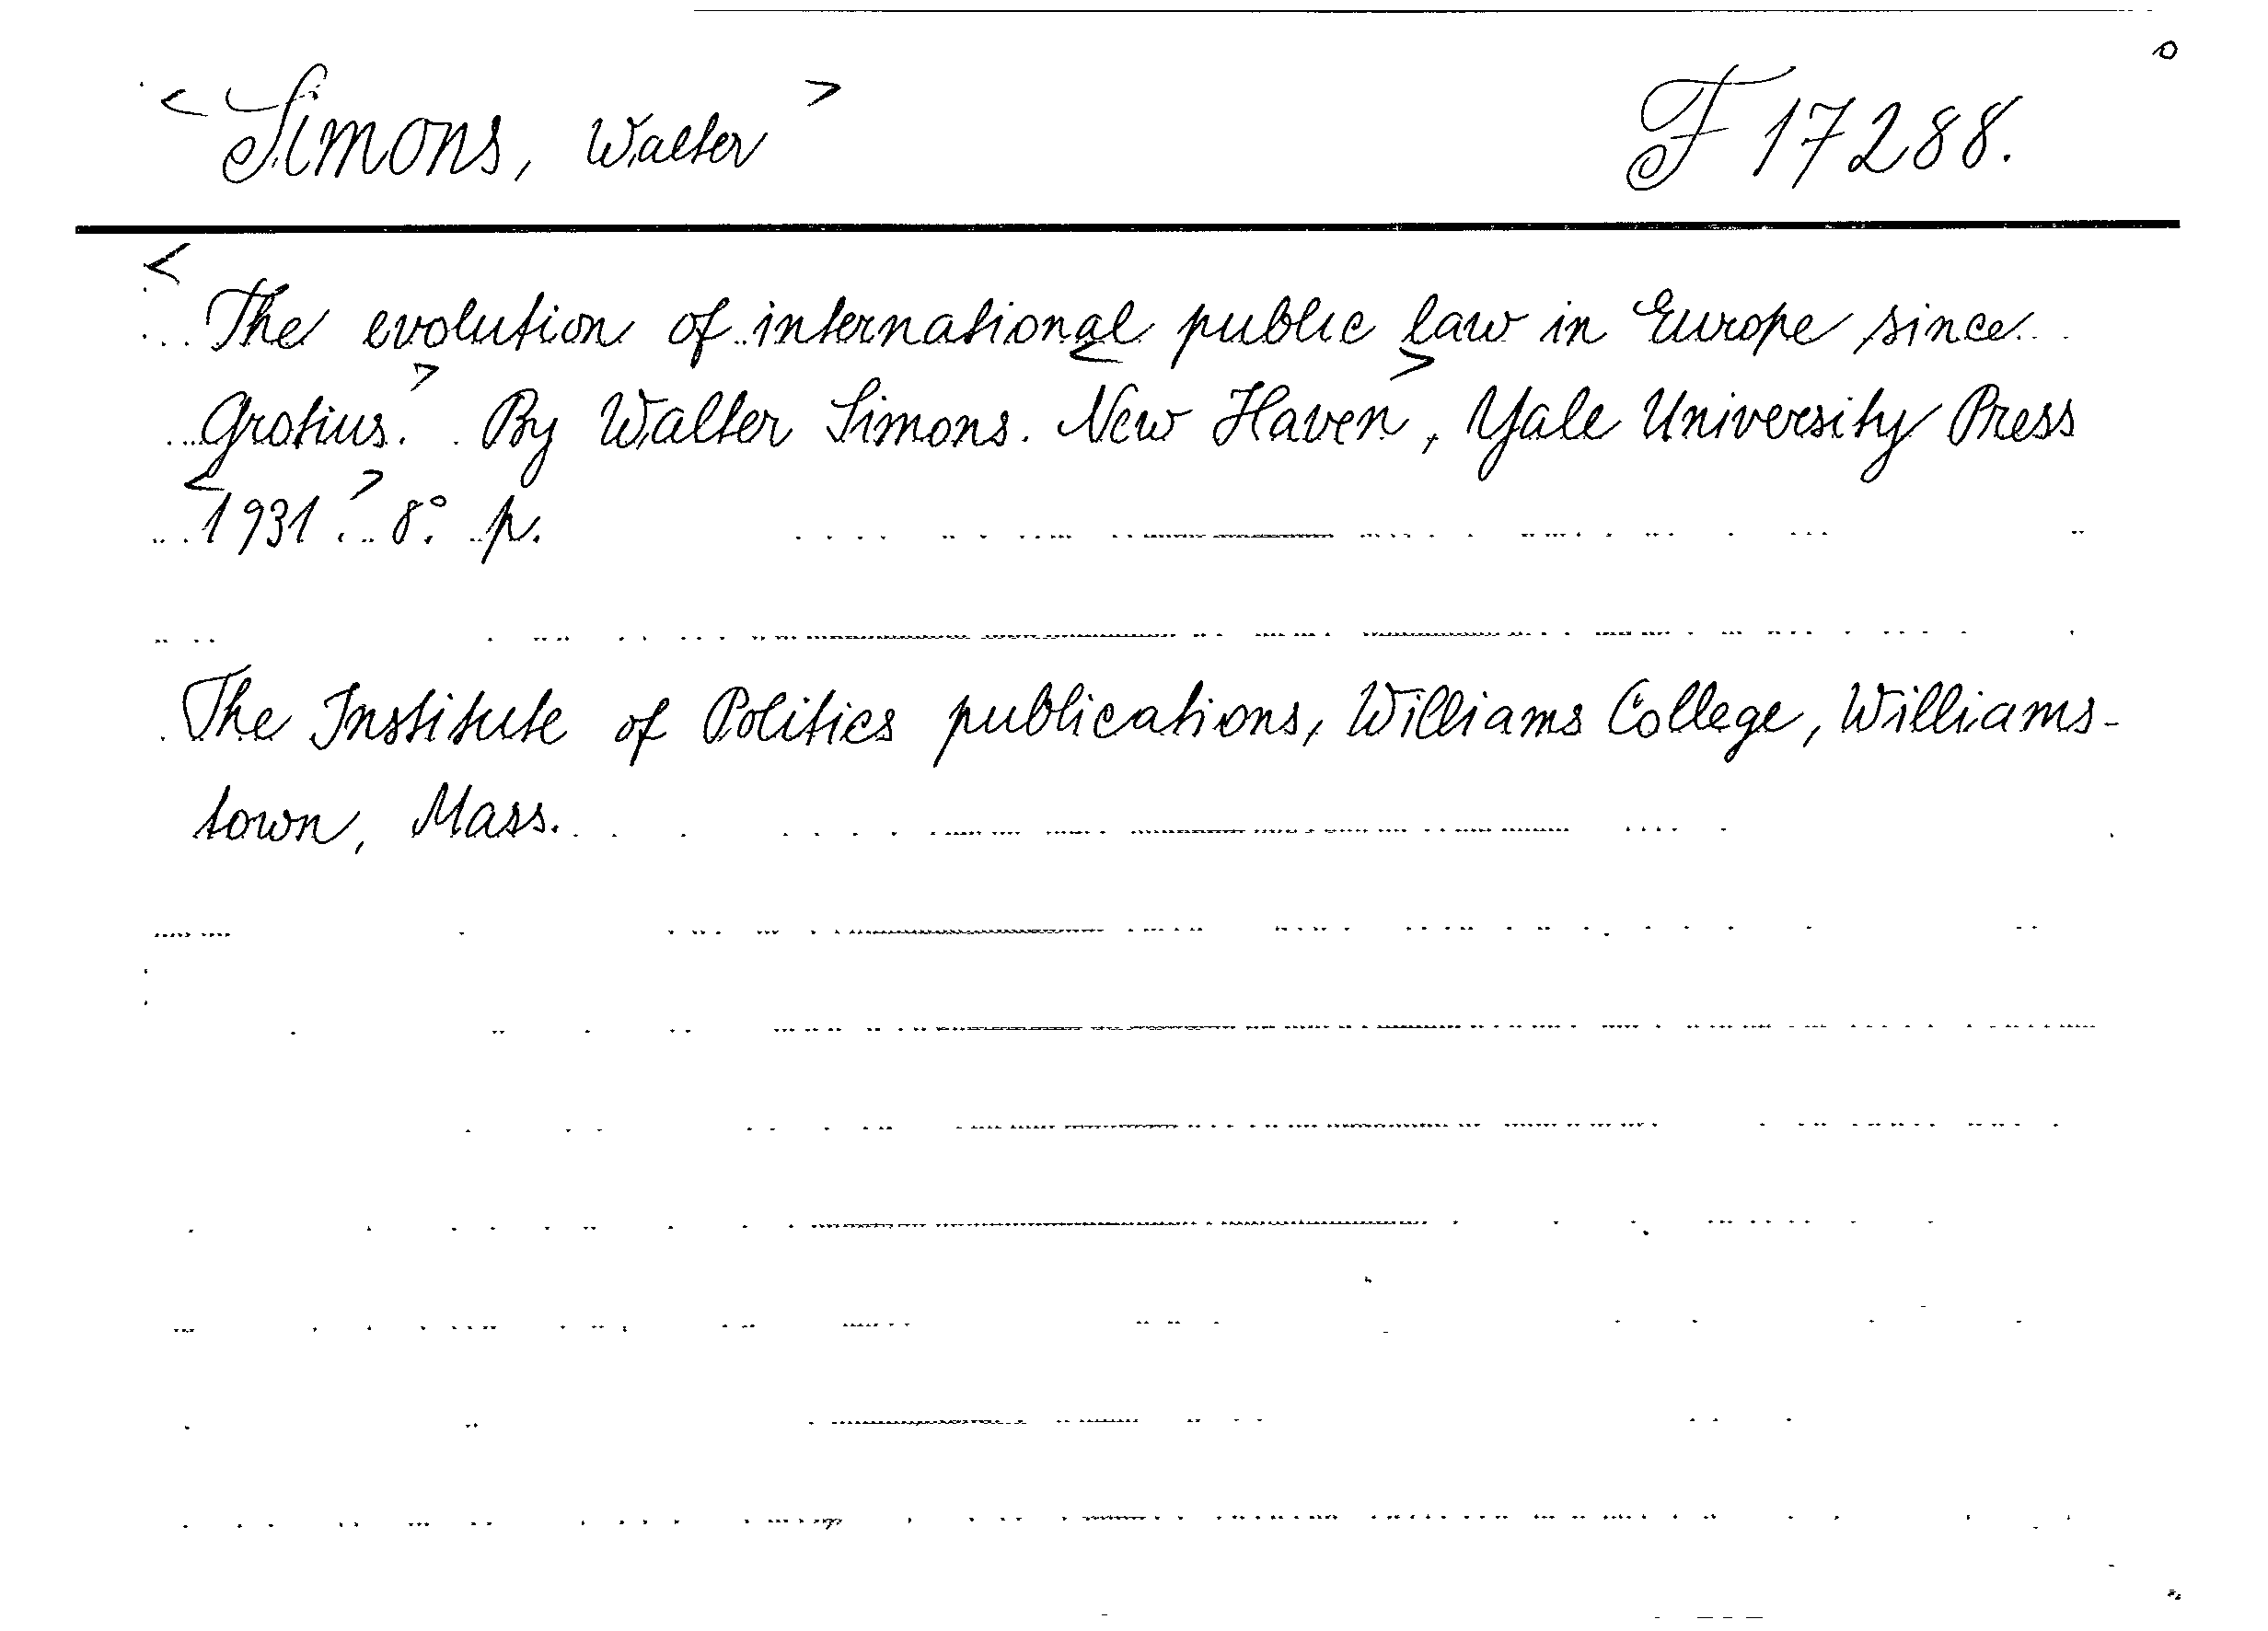 < Simons, Walter > F 17288.
< The evolution of international public law in Europe since
Grotius. > By Walter Simons. < New Haven >, Yale University Press
< 1931 >. 8°. p.
The Institute of Politics publications, Williams College, Williams-
town, Mass.